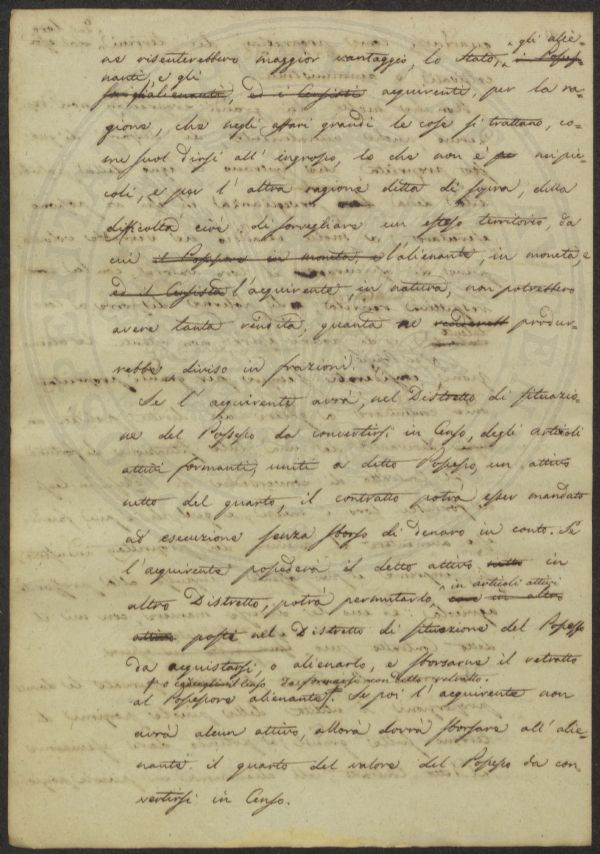 gli alie-
ne risenterebbero maggior vantaggio, lo Stato, i Posses
nanti, e gli
alienanti, ed i Censisti acquirente, per la ra-
gione, che negli affari grandi le cose si trattano, co-
me suol dirsi all' ingrosso, lo che non è nei pic-
coli, e per l' altra ragione ditta di sovra, della
difficoltà cioè di sorvegliare un esteso territorio, da
cui il Possessore in moneta, e l'alienante, in moneta, e
ed il Censista l'acquirente, in natura, non potrebbero
avere tanta rendita, quanta ne produr-
rebbe, diviso in frazioni.
Se l' acquirente avrà, nel Distretto di situazio-
ne del Possesso da convertirsi in Censo, degli articoli
attivi formanti, uniti a detto Possesso, un attivo
netto del quarto, il contratto potrà esser mandato
ad esecuzione senza sborso di denaro in conto. Se
l' acquirente possederà il detto attivo netto in
in articoli attivi
altro Distretto, potrà permutarlo, in altro
attivo poste nel Distretto di situazione del Possesso
da acquistarsi, o alienarlo, e sborsarne il retratto
o il Censo da formarsi con detto retratto.
al Possessore alienante. Se poi l' acquirente non
avrà alcun attivo, allora dovrà sborsare all' alie-
nante il quarto del valore del Possesso da con-
vertirsi in Censo.